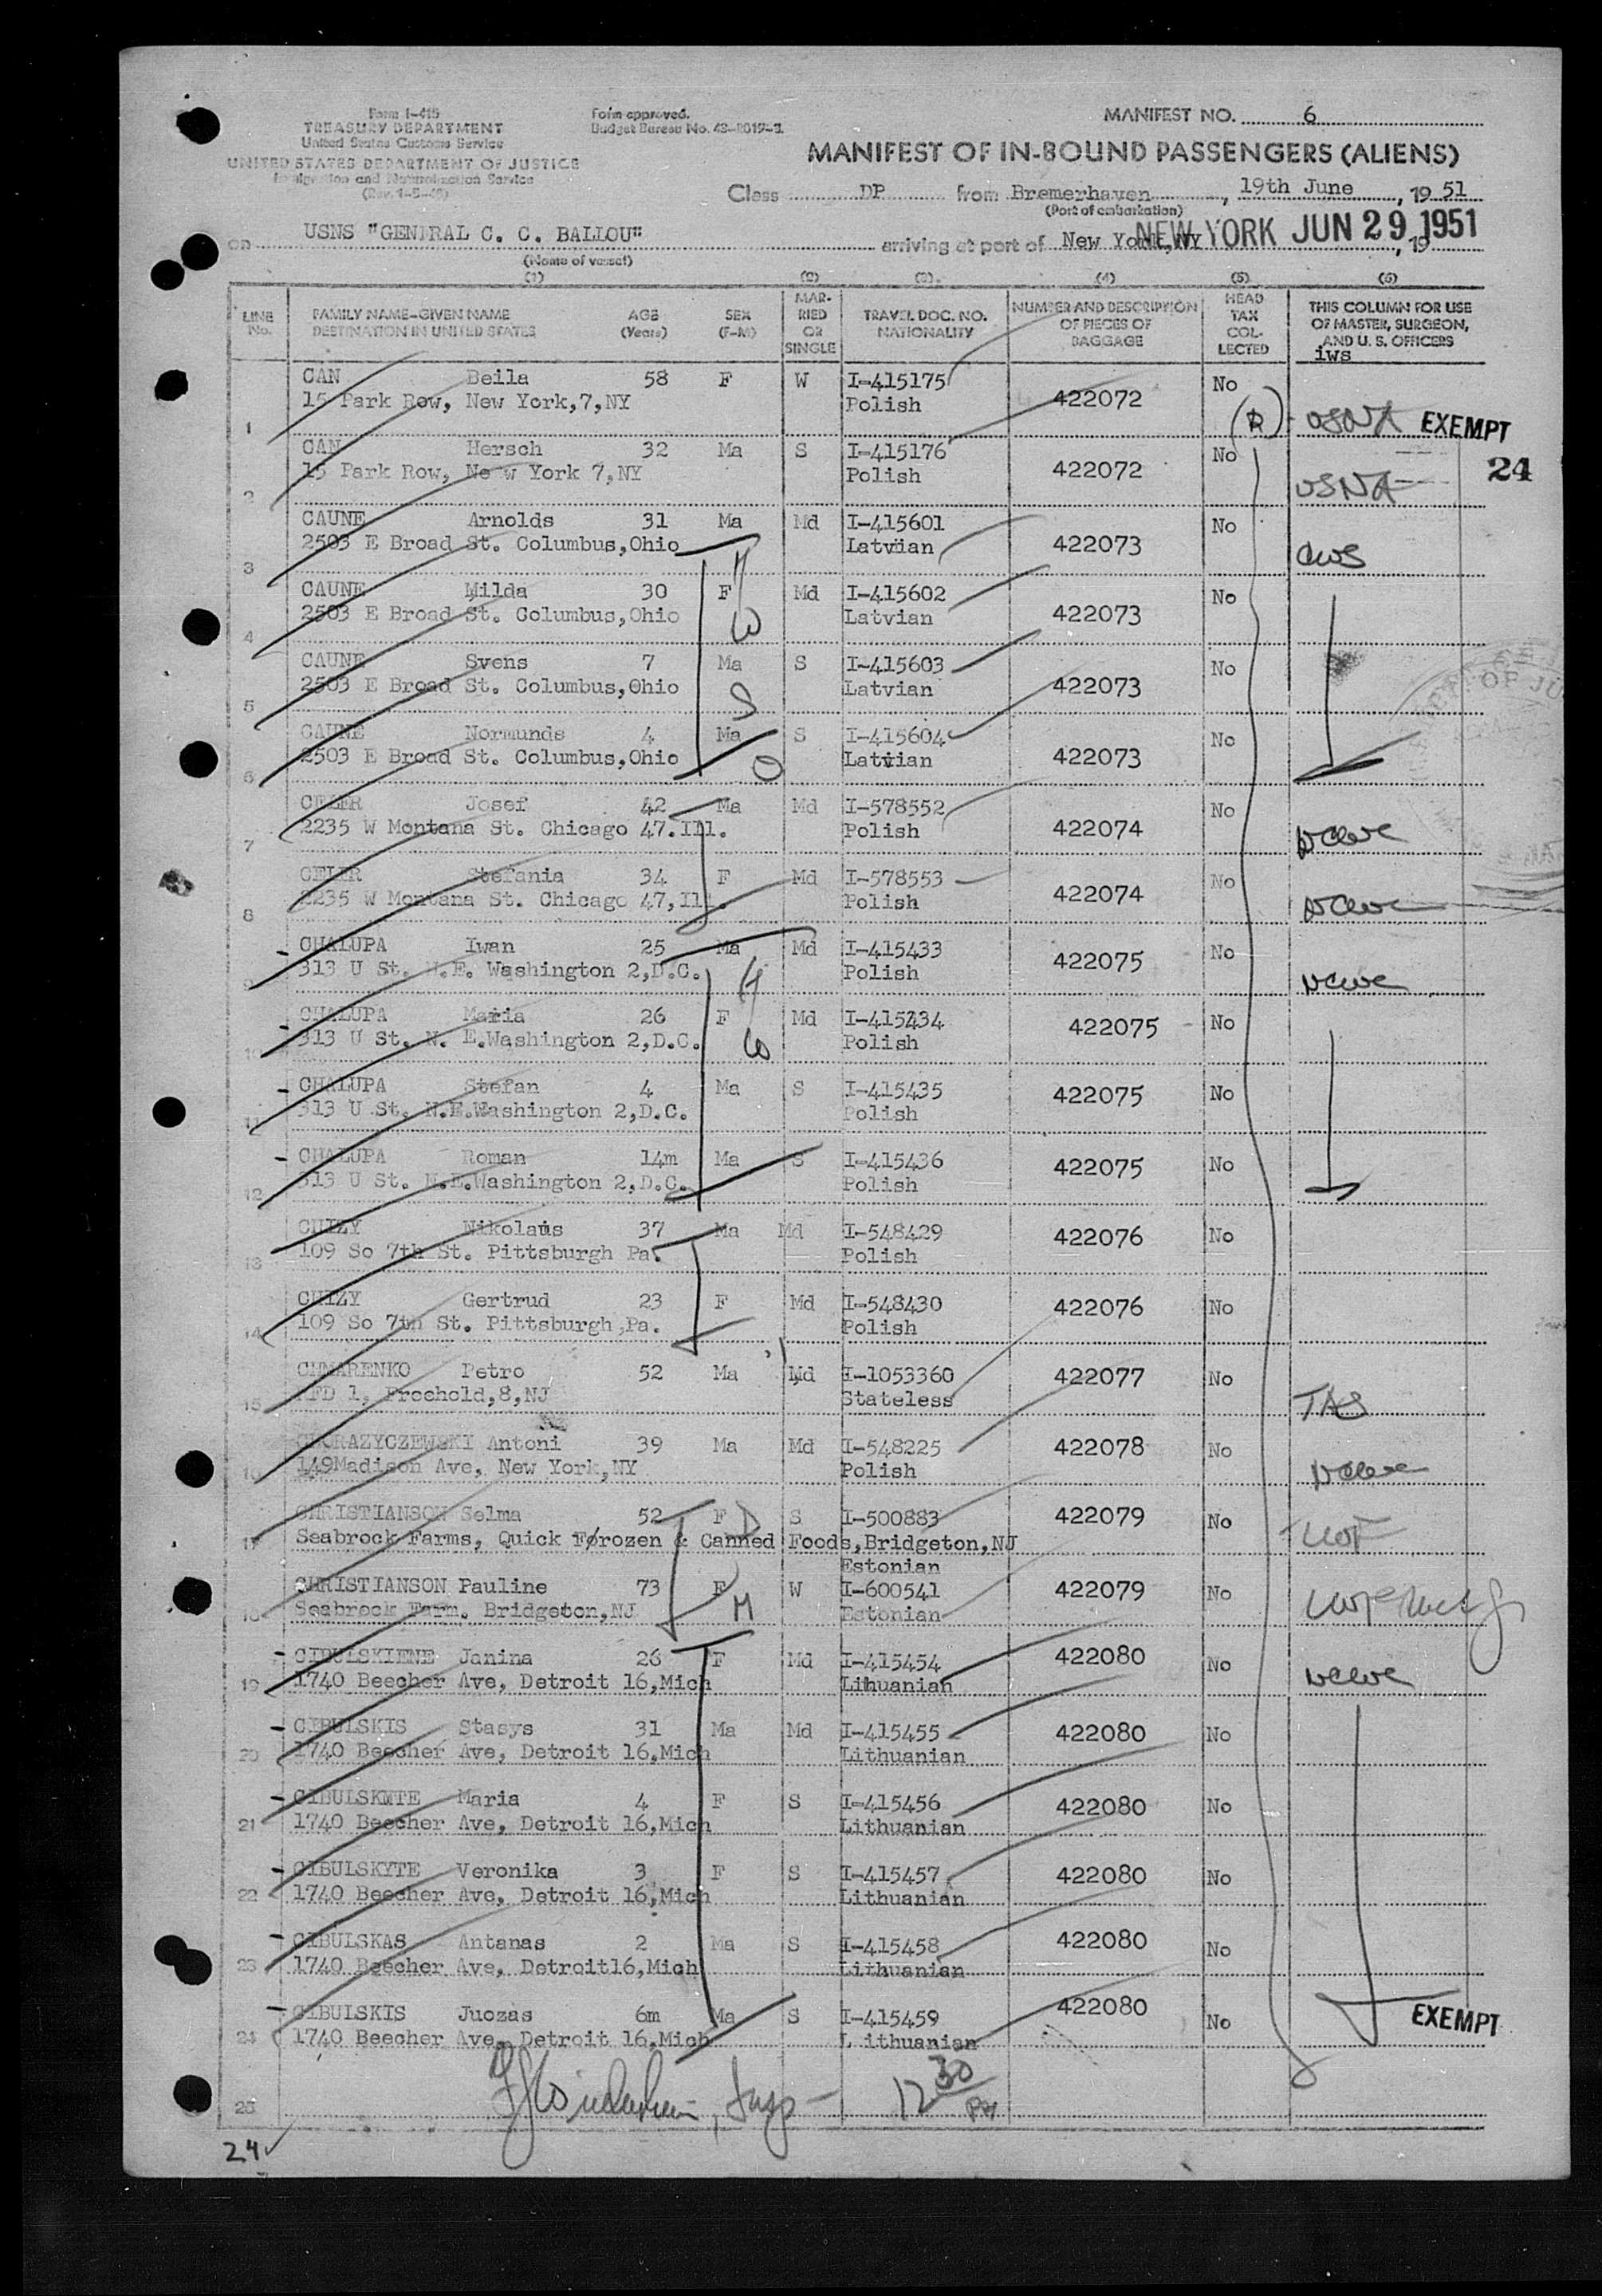 Form I-415
TREASURY DEPARTMENT
United States Customs Service
UNITED STATES DEPARTMENT OF JUSTICE
Immigration and Naturalization Service
Form approved.
Budget Bureau No. 43-R019-3.
MANIFEST NO. 6
MANIFEST OF IN-BOUND PASSENGERS (ALIENS)
Class DP from Bremerhaven, 19th June, 1951
(Port of embarkation)
on USNS "GENERAL C. C. BALLOU" arriving at port of New York, NY, 19
NEW YORK JUN 29 1951
(Name of vessel)
(1) (2) (3) (4) (5) (6)
LINE No. FAMILY NAME-GIVEN NAME DESTINATION IN UNITED STATES AGE (Years) SEX (F-M) MARRIED OR SINGLE TRAVEL DOC. NO. NATIONALITY NUMBER AND DESCRIPTION OF PIECES OF BAGGAGE HEAD TAX COLLECTED THIS COLUMN FOR USE OF MASTER, SURGEON, AND U. S. OFFICERS
iws
CAN Beila 58 F W I-415175 422072 No
1 15 Park Row, New York,7,NY Polish (R) USNA EXEMPT
24
CAN Hersch 32 Ma S I-415176 422072 No
2 15 Park Row, New York 7,NY Polish USNA
CAUNE Arnolds 31 Ma Md I-415601 422073 No
3 2503 E Broad St. Columbus,Ohio Latvian CWS
CAUNE Milda 30 F Md I-415602 422073 No
4 2503 E Broad St. Columbus,Ohio Latvian
CAUNE Svens 7 Ma S I-415603 422073 No
5 2503 E Broad St. Columbus,Ohio Latvian
CAUNE Normunds 4 Ma S I-415604 422073 No
6 2503 E Broad St. Columbus,Ohio Latvian
CELER Josef 42 Ma Md I-578552 422074 No
7 2235 W Montana St. Chicago 47.Ill. Polish NCWC
CELER Stefania 34 F Md I-578553 422074 No
8 2235 W Montana St. Chicago 47,Ill. Polish NCWC
CHALUPA Iwan 25 Ma Md I-415433 422075 No
9 313 U St. N.E. Washington 2,D.C. Polish NCWC
CHALUPA Maria 26 F Md I-415434 422075 No
10 313 U St. N. E.Washington 2,D.C. Polish
CHALUPA Stefan 4 Ma S I-415435 422075 No
11 313 U St. N.E.Washington 2,D.C. Polish
CHALUPA Roman 14m Ma S I-415436 422075 No
12 313 U St. N.E.Washington 2,D.C. Polish
CHIZY Nikolaus 37 Ma Md I-548429 422076 No
13 109 So 7th St. Pittsburgh Pa. Polish
CHIZY Gertrud 23 F Md I-548430 422076 No
14 109 So 7th St. Pittsburgh,Pa. Polish
CHMARENKO Petro 52 Ma Md I-1053360 422077 No
15 RFD 1, Freehold,8,NJ Stateless TAS
CHORAZYCZEWSKI Antoni 39 Ma Md I-548225 422078 No
16 149Madison Ave, New York,NY Polish NCWC
CHRISTIANSON Selma 52 F S I-500883 422079 No
17 Seabrock Farms, Quick Forozen & Canned Foods,Bridgeton,NJ
Estonian LWF
CHRISTIANSON Pauline 73 F W I-600541 422079 No
18 Seabrock Farm. Bridgeton,NJ Estonian LWF
CIBULSKIENE Janina 26 F Md I-415454 422080 No
19 1740 Beecher Ave, Detroit 16,Mich Lithuanian NCWC
CIBULSKIS Stasys 31 Ma Md I-415455 422080 No
20 1740 Beecher Ave, Detroit 16.Mich Lithuanian
CIBULSKYTE Maria 4 F S I-415456 422080 No
21 1740 Beecher Ave, Detroit 16,Mich Lithuanian
CIBULSKYTE Veronika 3 F S I-415457 422080 No
22 1740 Beecher Ave, Detroit 16,Mich Lithuanian
CIBULSKAS Antanas 2 Ma S I-415458 422080 No
23 1740 Beecher Ave, Detroit16,Mich Lithuanian
CIBULSKIS Juozas 6m Ma S I-415459 422080 No
24 1740 Beecher Ave, Detroit 16,Mich Lithuanian EXEMPT
25 12 30 PM
24